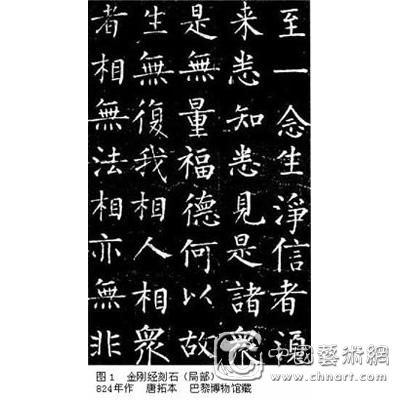 至一念生淨信者須
来悉知悉見是諸衆
是無量福德何以故
生無復我相人相衆
者相無法相亦無非
中國藝術網
图1 金刚经刻石（局部）
824年作 唐拓本 巴黎博物馆藏